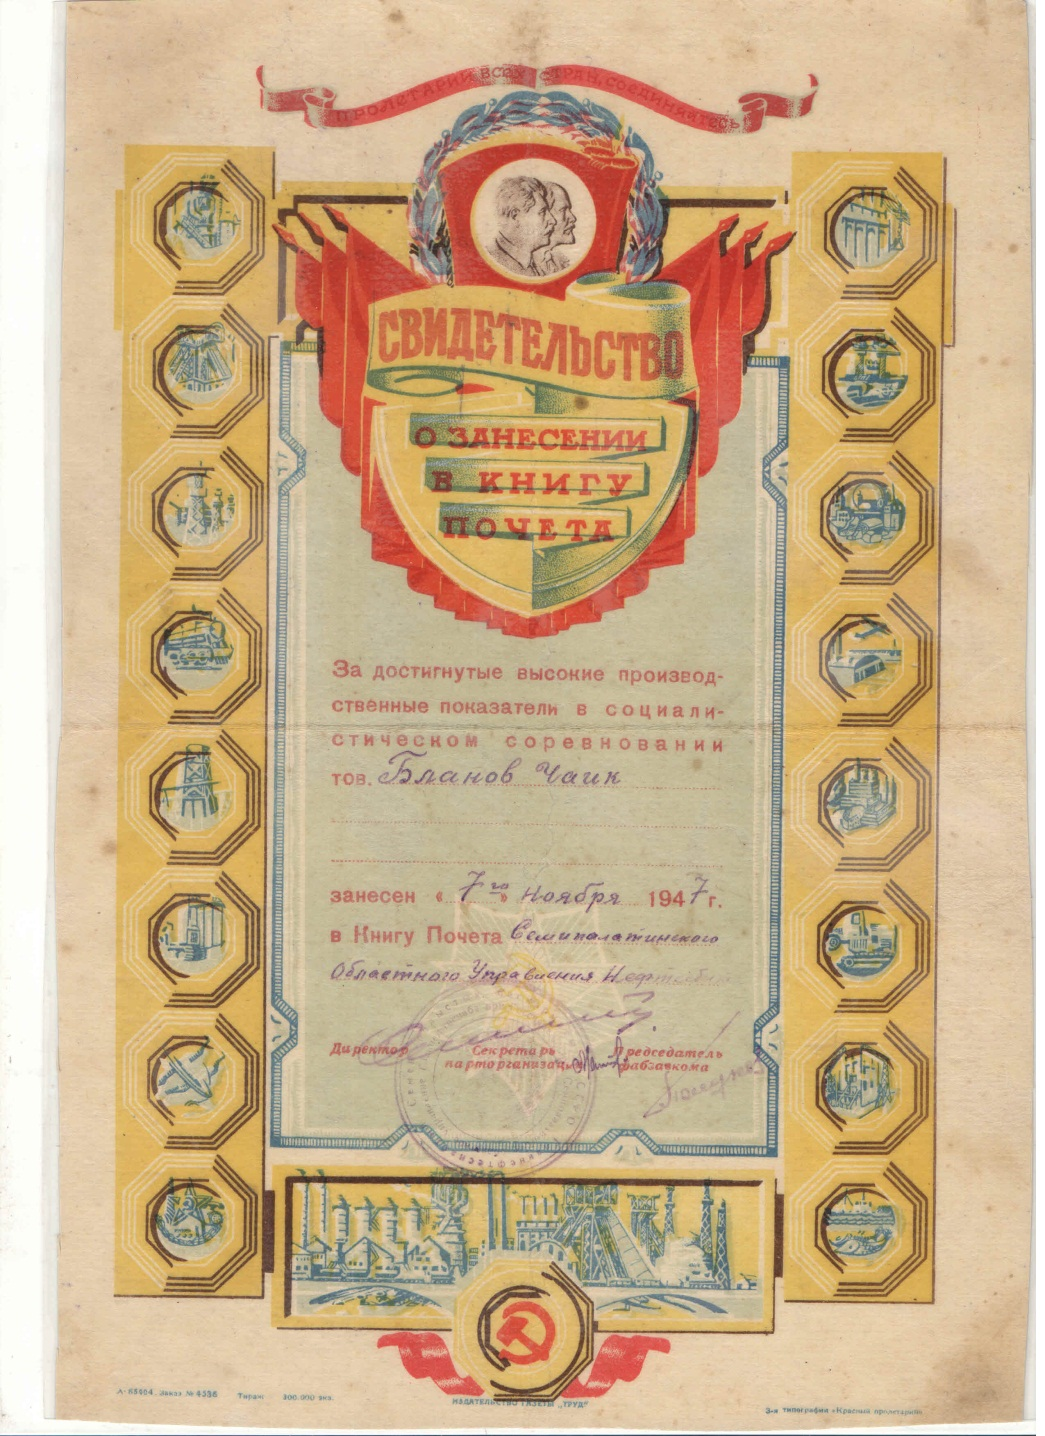 ПРОЛЕТАРИИ ВСЕХ СТРАН, СОЕДИНЯЙТЕСЬ!
СВИДЕТЕЛЬСТВО
О ЗАНЕСЕНИИ
В КНИГУ
ПОЧЕТА
За достигнутые высокие производ-
ственные показатели в социали-
стическом соревновании
тов. Бланов Чаик
занесен « 7го » ноября 1947 г.
в Книгу Почета Семипалатинского
Областного Управления
Директор Секретарь Председатель
парторганизации фабзавкома
А-65404 Заказ № 4536 Тираж 300.000 экз.
ИЗДАТЕЛЬСТВО ГАЗЕТЫ „ТРУД"
3-я типография «Красный пролетарий»